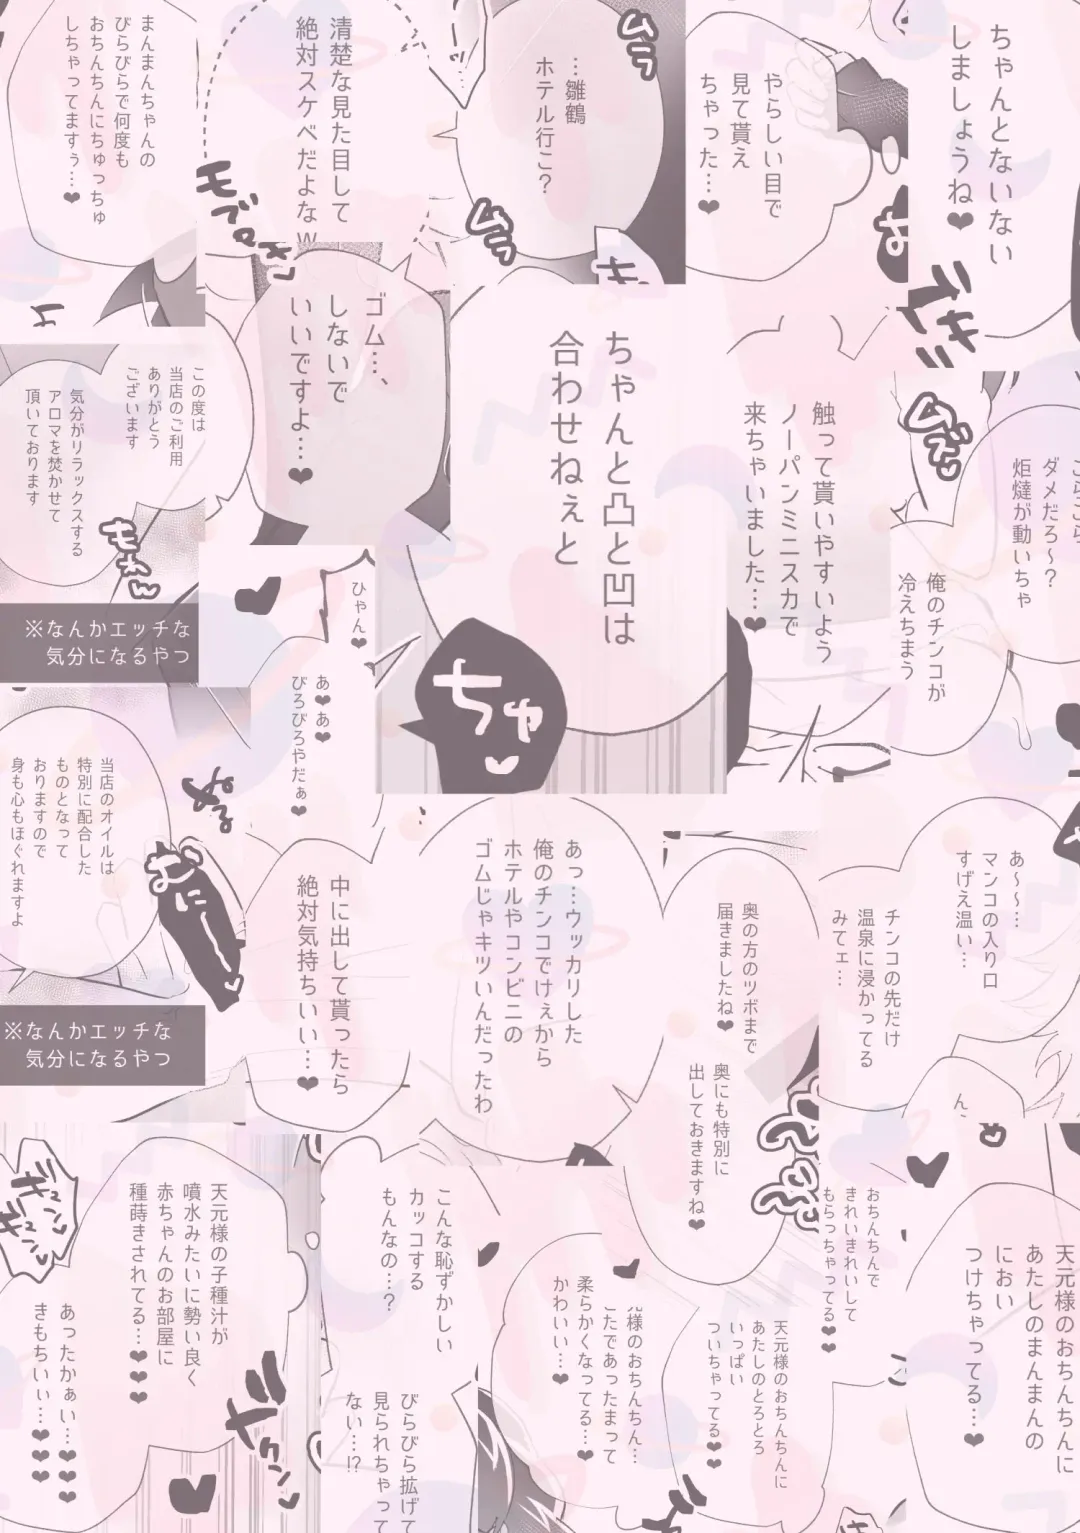 ちゃんとないない
しましょうね♥
やらしい目で
見て貰え
ちゃった…♥
ムラ
…雛鶴
ホテル行こ?
ムラ
清楚な見た目して
絶対スケベだよなw
まんまんちゃんの
びらびらで何度も
おちんちんにちゅっちゅ
しちゃってますぅ…♥
ゴム…、
しないで
いいですよ…♥
この度は
当店のご利用
ありがとう
ございます
気分がリラックスする
アロマを焚かせて
頂いております
もわぁん
※なんかエッチな
気分になるやつ
ちゃんと凸と凹は
合わせねぇと
ちゅ♥
触って貰いやすいよう
ノーパンミニスカで
来ちゃいました…♥
ムズッ
こらこら
ダメだろ～?
炬燵が動いちゃ
俺のチンコが
冷えちまう
ひゃん♥
あ♥あ♥
びろびろやだぁ♥
当店のオイルは
特別に配合した
ものとなって
おりますので
身も心もほぐれますよ
ぬる
むにーっ
※なんかエッチな
気分になるやつ
中に出して貰ったら
絶対気持ちいい…♥
あっ…ウッカリした
俺のチンコでけぇから
ホテルやコンビニの
ゴムじゃキツいんだったわ
奥の方のツボまで
届きましたね♥
奥にも特別に
出しておきますね♥
あ～～…
マンコの入り口
すげえ温い…
チンコの先だけ
温泉に浸かってる
みてェ…
天元様の子種汁が
噴水みたいに勢い良く
赤ちゃんのお部屋に
種蒔きされてる…♥♥♥
あったかぁい…♥♥♥
きもちいぃ…♥♥♥
ギュンッ
ギュンッ
ドクンッ
こんな恥ずかしい
カッコする
もんなの…?
びらびら拡げて
見られちゃって
ない…!?
元様のおちんちん…
こたであったまって
柔らかくなってる…♥
かわいい…♥
天元様のおちんちんに
あたしのとろとろ
いっぱい
ついちゃってる♥♥
おちんちんで
きれいきれいして
もらっちゃってる♥♥
天元様のおちんちんに
あたしのまんまんの
におい
つけちゃってる…♥